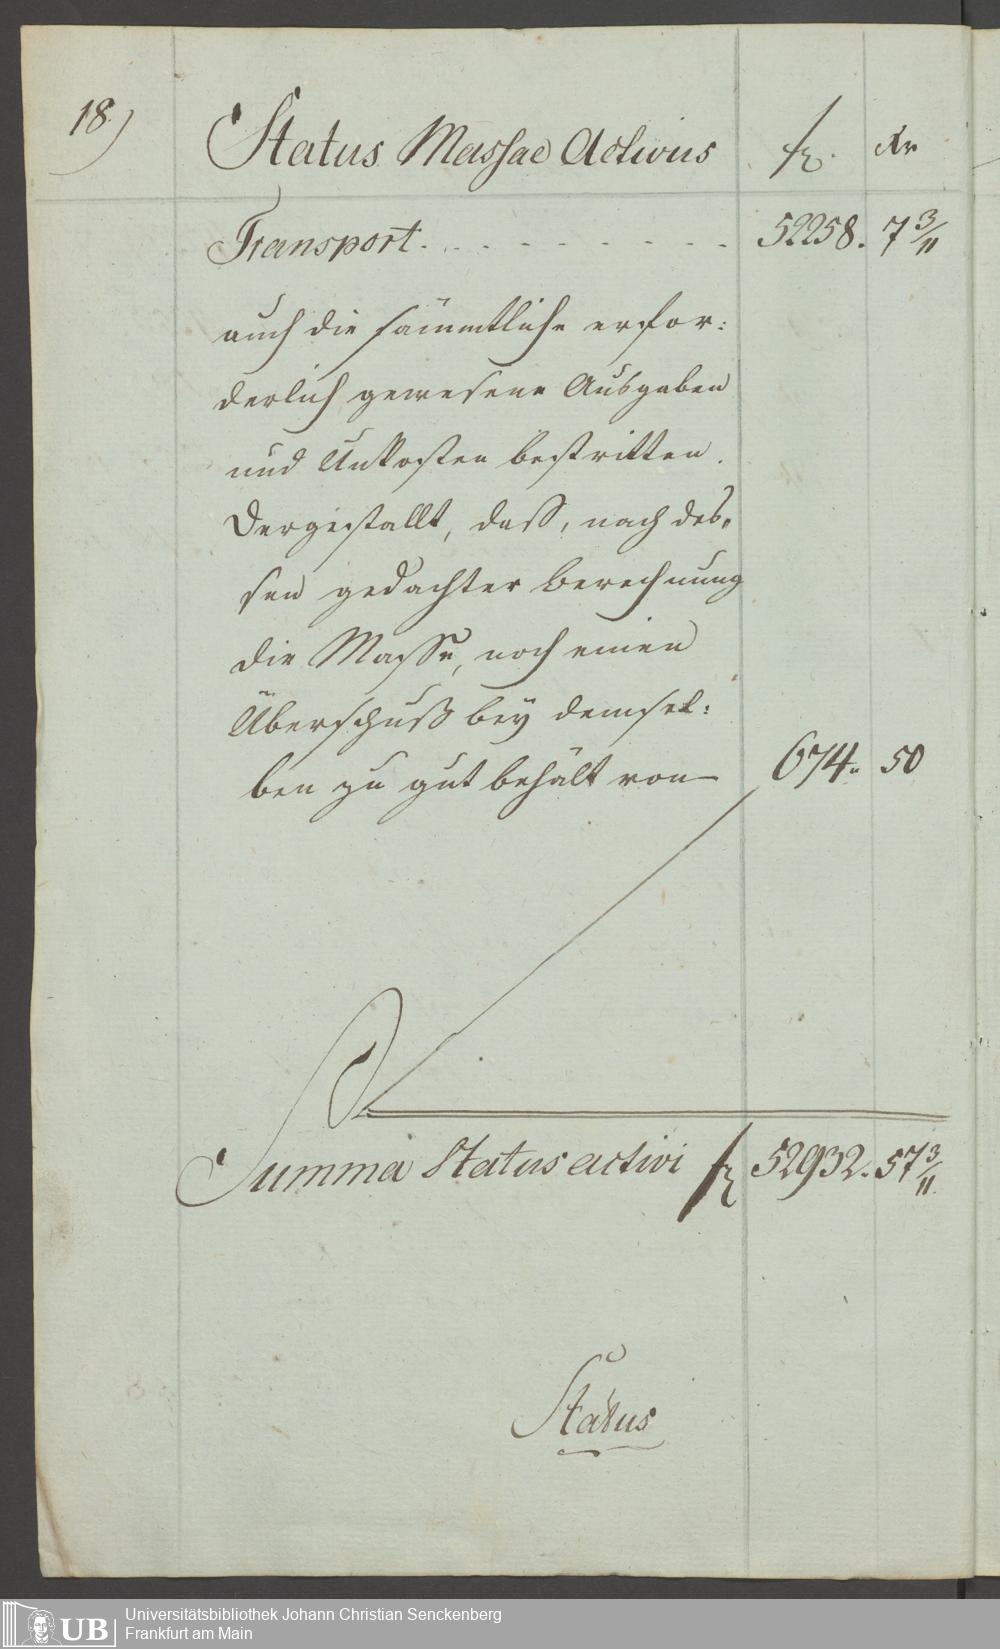 18)
Status Massae Activus fl. Xr
Transport . . . . . . . . . . 52258. 7 3/11
auch die sämmtliche erfor:
derlich gewesene Ausgaben
und Unkosten bestritten.
Dergestallt, dass, nach des„
sen gedachter Berechnung
die Masse, noch einen
Überschuß bey demsel:
ben zu gut behält von — 674. 50
Summa Status activi fl 52932. 57 3/11
Status
Universitätsbibliothek Johann Christian Senckenberg
UB Frankfurt am Main